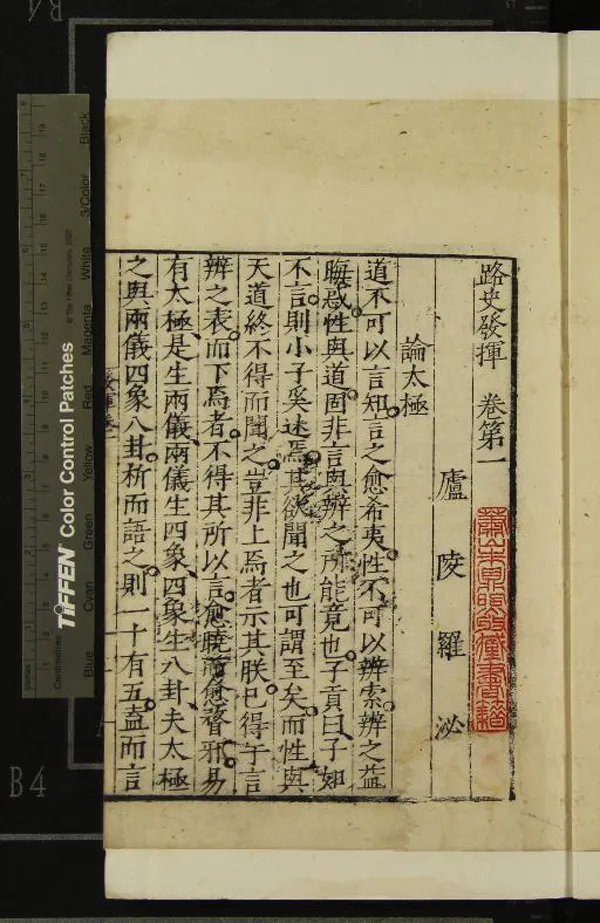 路史發揮 卷第一
蕭山朱鼎煦收藏書籍
廬陵羅泌
論太極
道不可以言知言之愈希夷性不可以辨索辨之益
晦惑性與道固非言與辨之所能竟也子貢曰子如
不言則小子奚述焉其欲聞之也可謂至矣而性與
天道終不得而聞之豈非上焉者示其朕已得于言
辨之表而下焉者不得其所以言愈曉而愈瞀邪易
有太極是生兩儀兩儀生四象四象生八卦夫太極
之與兩儀四象八卦析而語之則一十有五盍而言
TIFFEN Color Control Patches
© The Tiffen Company, 2007
Blue Cyan Green Yellow Red Magenta White 3/Color Black
B4